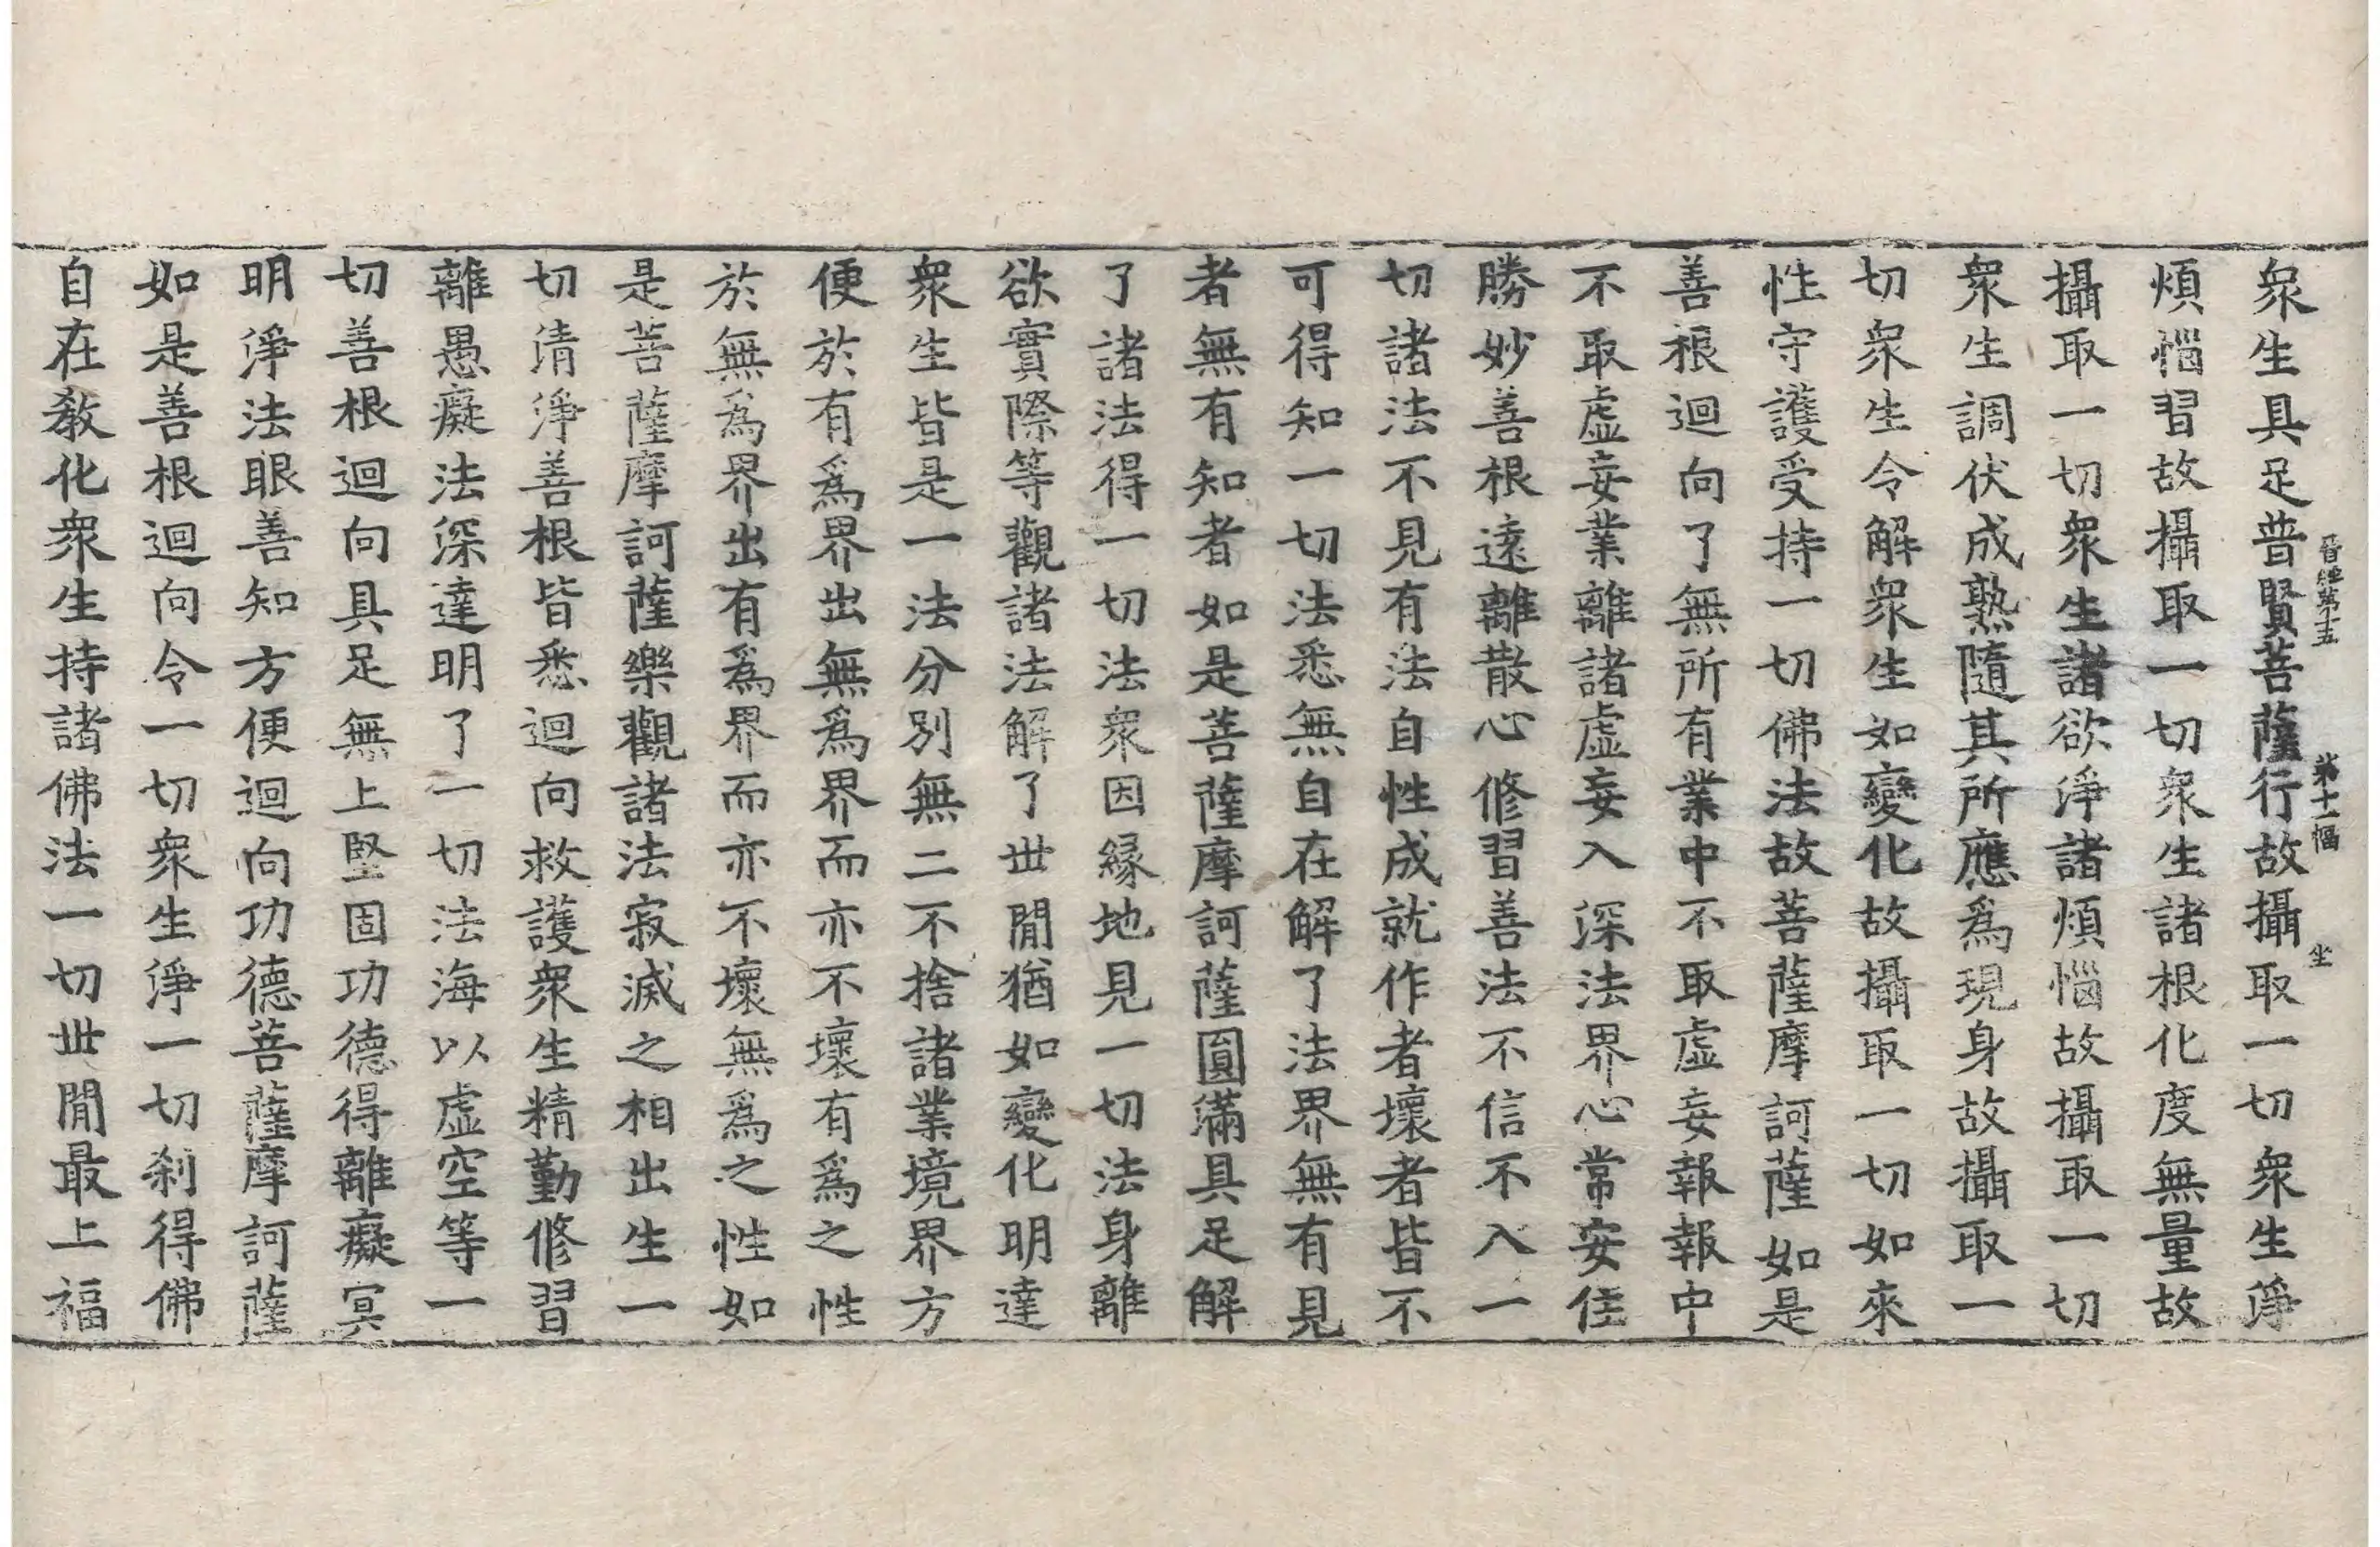 晉經第十五　第十一幅　坐
衆生具足普賢菩薩行故攝取一切衆生淨
煩惱習故攝取一切衆生諸根化度無量故
攝取一切衆生諸欲淨諸煩惱故攝取一切
衆生調伏成熟隨其所應爲現身故攝取一
切衆生令解衆生如變化故攝取一切如來
性守護受持一切佛法故菩薩摩訶薩如是
善根迴向了無所有業中不取虛妄報報中
不取虛妄業離諸虛妄入深法界心常安住
勝妙善根遠離散心修習善法不信不入一
切諸法不見有法自性成就作者壞者皆不
可得知一切法悉無自在解了法界無有見
者無有知者如是菩薩摩訶薩圓滿具足解
了諸法得一切法衆因緣地見一切法身離
欲實際等觀諸法解了世閒猶如變化明達
衆生皆是一法分別無二不捨諸業境界方
便於有爲界出無爲界而亦不壞有爲之性
於無爲界出有爲界而亦不壞無爲之性如
是菩薩摩訶薩樂觀諸法寂滅之相出生一
切清淨善根皆悉迴向救護衆生精勤修習
離愚癡法深達明了一切法海以虛空等一
切善根迴向具足無上堅固功德得離癡冥
明淨法眼善知方便迴向功德菩薩摩訶薩
如是善根迴向令一切衆生淨一切刹得佛
自在教化衆生持諸佛法一切世閒最上福